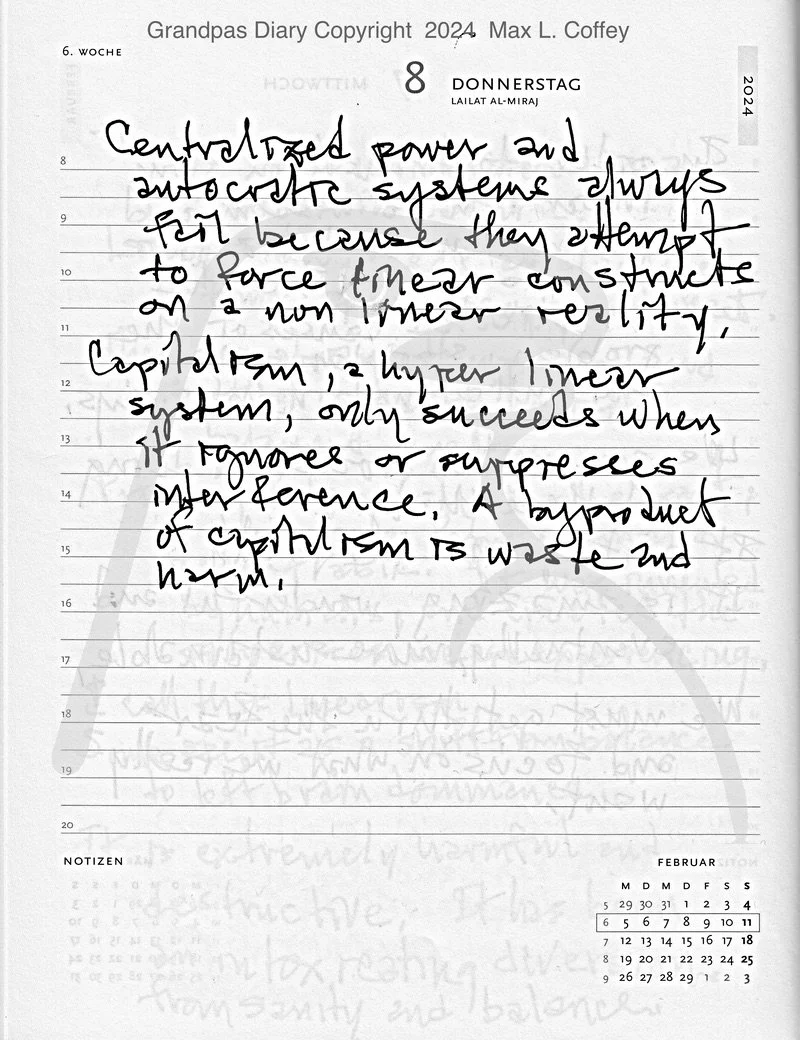 Grandpas Diary Copyright 2024 Max L. Coffey
6. WOCHE
8 DONNERSTAG
LAILAT AL-MIRAJ
2024
Centralized power and
8
autocratic systems always
9
fail because they attempt
10
to force linear constructs
on a non linear reality,
11
Capitalism, a hyper linear
12
system, only succeeds when
13
it ignores or suppresses
14
interference. A byproduct
15
of capitalism is waste and
harm.
16
17
18
19
20
It is extremely harmful and
destructive. It has
intoxicating
from sanity and balance.
NOTIZEN
FEBRUAR
M D M D F S S
5 29 30 31 1 2 3 4
6 5 6 7 8 9 10 11
7 12 13 14 15 16 17 18
8 19 20 21 22 23 24 25
9 26 27 28 29 1 2 3